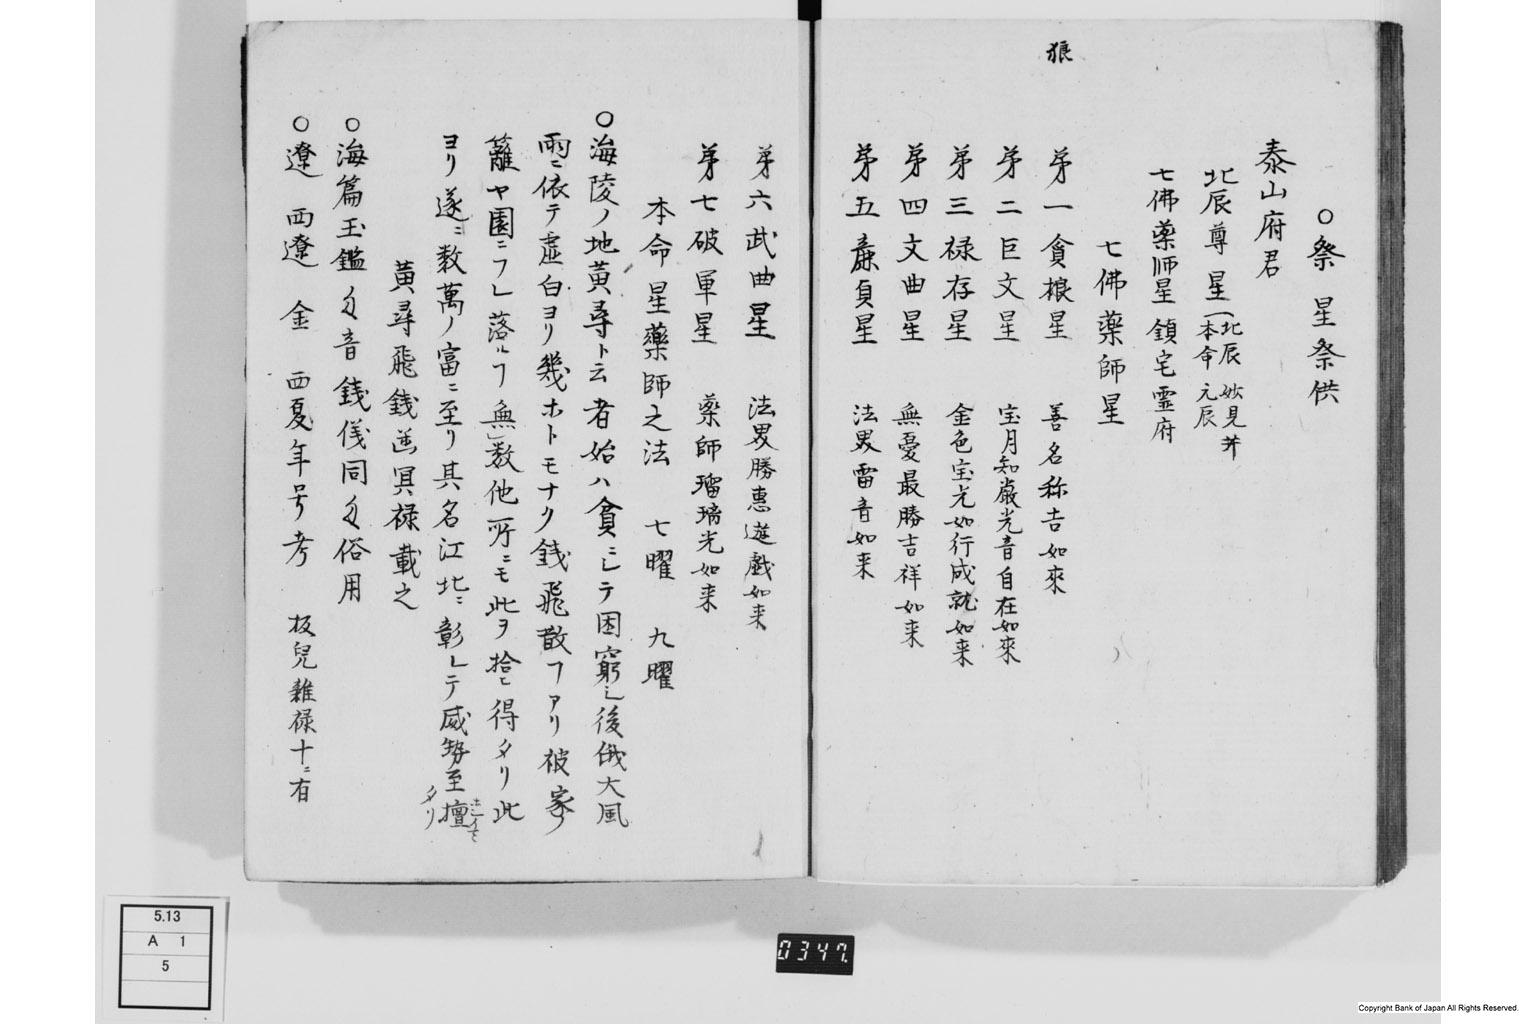 狼
○祭星祭供
泰山府君
北辰尊星(北辰 妙見 并
本命 元辰
七佛薬師星 鎮宅霊府
七佛薬師星
㐧一貪狼星 善名称吉如來
㐧二巨文星 宝月知嚴光音自在如來
㐧三禄存星 金色宝光如行成就如来
㐧四文曲星 無憂最勝吉祥如来
㐧五廉負星 法界雷音如来
㐧六武曲星 法界勝恵遊戯如来
㐧七破軍星 薬師瑠璃光如来
本命星藥師之法 七曜 九曜
○海陵ノ地黄尋ト云者始ハ貧ニシテ困窮シ後俄大風
雨ニ依テ虚白ヨリ幾ホトモナク銭飛散フアリ彼家ノ
籬ヤ園ニフレ落ルフ無数他所ニモ此ヲ拾ヒ得タリ此
ヨリ遂ニ数萬ノ富ニ至リ其名江北ニ彰レテ威勢至擅
タリ
黄尋飛銭出冥禄載之
○海篇玉鑑 音銭儀同 俗用
○遼 西遼 金 西夏年号考 板兒雜禄十ニ有
5.13
A 1
5
0347.
Copyright Bank of Japan All Rights Reserved.